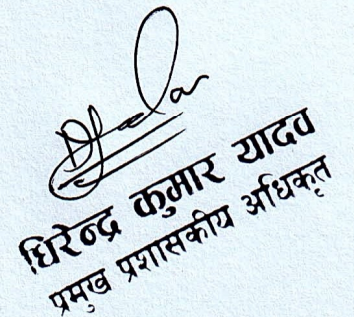 धिरेन्द्र कुमार यादव
प्रमुख प्रशासकीय अधिकृत